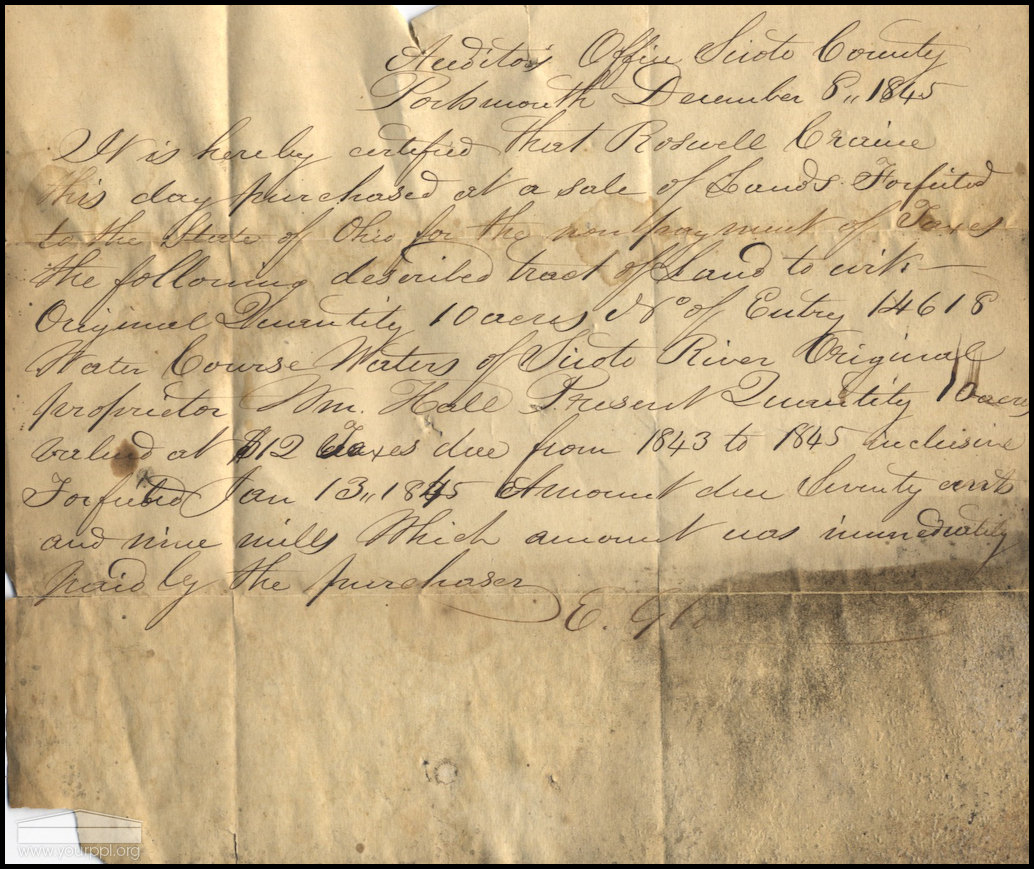 Auditors Office Scioto County
Portsmouth December 8,, 1845
It is hereby certified that Roswell Craine
this day purchased at a sale of Lands Forfeited
to the State of Ohio for the non payment of Taxes
the following described tract of Land to wit —
Original Quantity 10 acres No of Entry 14618
Water Course Waters of Scioto River Original
proprietor Wm. Hall Present Quantity 10 acres
valued at $12 Taxes due from 1843 to 1845 inclusive
Forfeited Jan 13,, 1845 Amount due Seventy cents
and nine mills Which amount was immediately
paid by the purchaser
E.
www.yourppl.org